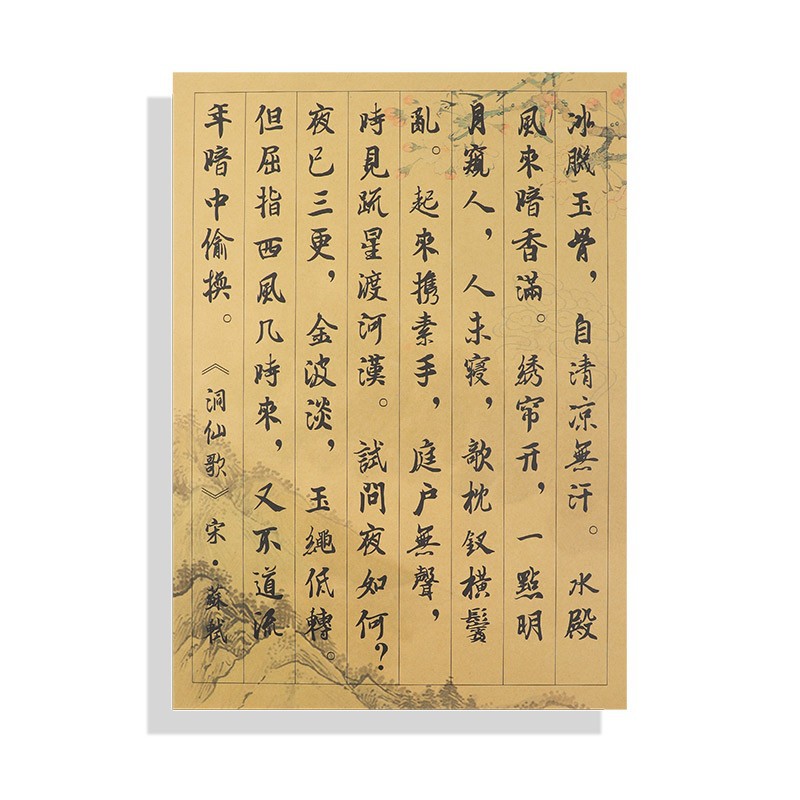 冰肌玉骨，自清凉無汗。水殿
風來暗香滿。绣帘开，一點明
月窺人，人未寢，歌枕釵横鬢
亂。起來携素手，庭户無聲，
時見疏星渡河漢。試問夜如何？
夜已三更，金波淡，玉繩低轉。
但屈指西風几時來，又不道流
年暗中偷换。《洞仙歌》宋·蘇軾